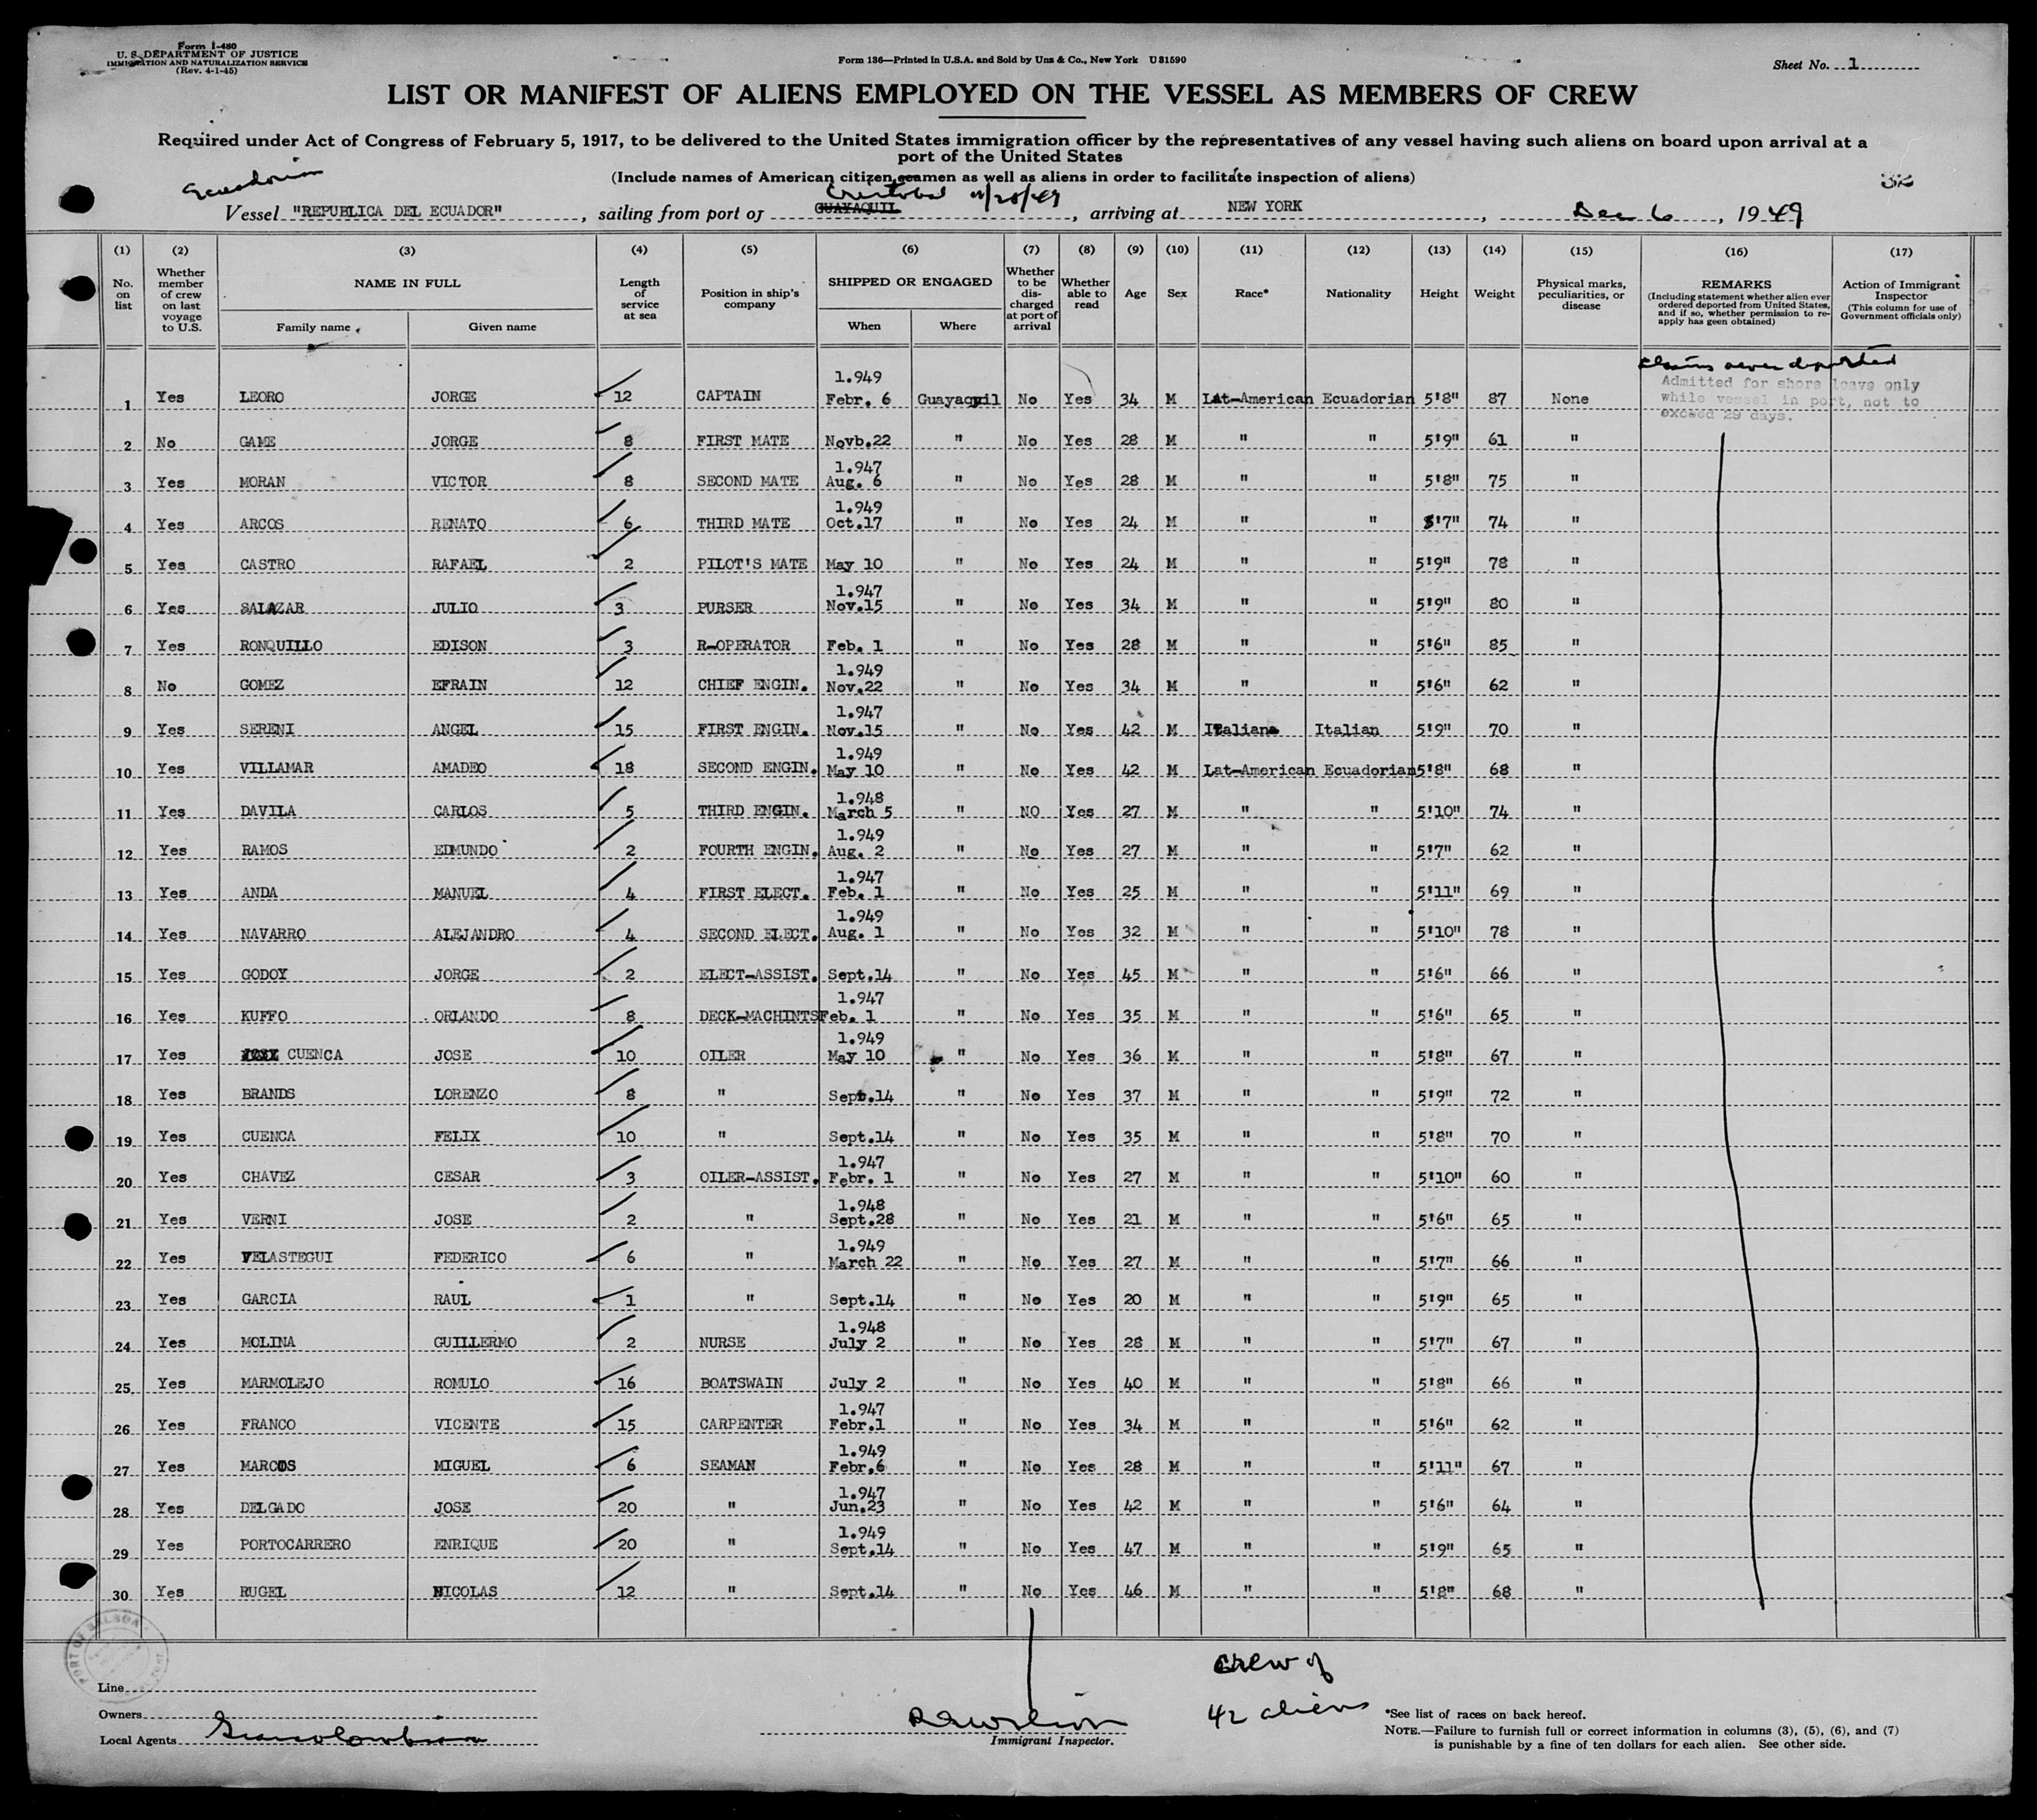 Form I-480
U. S. DEPARTMENT OF JUSTICE
IMMIGRATION AND NATURALIZATION SERVICE
(Rev. 4-1-45)
Form 136—Printed in U.S.A. and Sold by Unz & Co., New York U 31590
Sheet No. 1
LIST OR MANIFEST OF ALIENS EMPLOYED ON THE VESSEL AS MEMBERS OF CREW
Required under Act of Congress of February 5, 1917, to be delivered to the United States immigration officer by the representatives of any vessel having such aliens on board upon arrival at a
port of the United States
(Include names of American citizen seamen as well as aliens in order to facilitate inspection of aliens)
32
Ecuadorian
Cristobal 11/28/49
Vessel "REPUBLICA DEL ECUADOR", sailing from port of GUAYAQUIL, arriving at NEW YORK, Dec 6, 1949
(1) (2) (3) (4) (5) (6) (7) (8) (9) (10) (11) (12) (13) (14) (15) (16) (17)
No. on list
Whether member of crew on last voyage to U.S.
NAME IN FULL
Family name
Given name
Length of service at sea
Position in ship's company
SHIPPED OR ENGAGED
When
Where
Whether to be discharged at port of arrival
Whether able to read
Age
Sex
Race*
Nationality
Height
Weight
Physical marks, peculiarities, or disease
REMARKS
(Including statement whether alien ever ordered deported from United States, and if so, whether permission to re-apply has geen obtained)
Action of Immigrant Inspector
(This column for use of Government officials only)
Claims never deported
Admitted for shore leave only
while vessel in port, not to
exceed 29 days.
1 Yes LEORO JORGE 12 CAPTAIN 1.949 Febr. 6 Guayaquil No Yes 34 M Lat-American Ecuadorian 5'8" 87 None
2 No GAME JORGE 8 FIRST MATE Novb.22 " No Yes 28 M " " 5'9" 61 "
3 Yes MORAN VICTOR 8 SECOND MATE 1.947 Aug. 6 " No Yes 28 M " " 5'8" 75 "
4 Yes ARCOS RENATO 6 THIRD MATE 1.949 Oct.17 " No Yes 24 M " " 5'7" 74 "
5 Yes CASTRO RAFAEL 2 PILOT'S MATE May 10 " No Yes 24 M " " 5'9" 78 "
6 Yes SALAZAR JULIO 3 PURSER 1.947 Nov.15 " No Yes 34 M " " 5'9" 80 "
7 Yes RONQUILLO EDISON 3 R-OPERATOR Feb. 1 " No Yes 28 M " " 5'6" 85 "
8 No GOMEZ EFRAIN 12 CHIEF ENGIN. 1.949 Nov.22 " No Yes 34 M " " 5'6" 62 "
9 Yes SERENI ANGEL 15 FIRST ENGIN. 1.947 Nov.15 " No Yes 42 M Italian Italian 5'9" 70 "
10 Yes VILLAMAR AMADEO 18 SECOND ENGIN. 1.949 May 10 " No Yes 42 M Lat-American Ecuadorian 5'8" 68 "
11 Yes DAVILA CARLOS 5 THIRD ENGIN. 1.948 March 5 " NO Yes 27 M " " 5'10" 74 "
12 Yes RAMOS EDMUNDO 2 FOURTH ENGIN. 1.949 Aug. 2 " No Yes 27 M " " 5'7" 62 "
13 Yes ANDA MANUEL 4 FIRST ELECT. 1.947 Feb. 1 " No Yes 25 M " " 5'11" 69 "
14 Yes NAVARRO ALEJANDRO 4 SECOND ELECT. 1.949 Aug. 1 " No Yes 32 M " " 5'10" 78 "
15 Yes GODOY JORGE 2 ELECT-ASSIST. Sept.14 " No Yes 45 M " " 5'6" 66 "
16 Yes KUFFO ORLANDO 8 DECK-MACHINTS 1.947 Feb. 1 " No Yes 35 M " " 5'6" 65 "
17 Yes CUENCA JOSE 10 OILER 1.949 May 10 " No Yes 36 M " " 5'8" 67 "
18 Yes BRANDS LORENZO 8 " Sept.14 " No Yes 37 M " " 5'9" 72 "
19 Yes CUENCA FELIX 10 " Sept.14 " No Yes 35 M " " 5'8" 70 "
20 Yes CHAVEZ CESAR 3 OILER-ASSIST. 1.947 Febr. 1 " No Yes 27 M " " 5'10" 60 "
21 Yes VERNI JOSE 2 " 1.948 Sept.28 " No Yes 21 M " " 5'6" 65 "
22 Yes VELASTEGUI FEDERICO 6 " 1.949 March 22 " No Yes 27 M " " 5'7" 66 "
23 Yes GARCIA RAUL 1 " Sept.14 " No Yes 20 M " " 5'9" 65 "
24 Yes MOLINA GUILLERMO 2 NURSE 1.948 July 2 " No Yes 28 M " " 5'7" 67 "
25 Yes MARMOLEJO ROMULO 16 BOATSWAIN July 2 " No Yes 40 M " " 5'8" 66 "
26 Yes FRANCO VICENTE 15 CARPENTER 1.947 Febr.1 " No Yes 34 M " " 5'6" 62 "
27 Yes MARCOS MIGUEL 6 SEAMAN 1.949 Febr.6 " No Yes 28 M " " 5'11" 67 "
28 Yes DELGADO JOSE 20 " 1.947 Jun.23 " No Yes 42 M " " 5'6" 64 "
29 Yes PORTOCARRERO ENRIQUE 20 " 1.949 Sept.14 " No Yes 47 M " " 5'9" 65 "
30 Yes RUGEL NICOLAS 12 " Sept.14 " No Yes 46 M " " 5'8" 68 "
Crew of
42 aliens
Line
Owners
Local Agents Grancolombiana
Immigrant Inspector.
*See list of races on back hereof.
NOTE.—Failure to furnish full or correct information in columns (3), (5), (6), and (7)
is punishable by a fine of ten dollars for each alien. See other side.